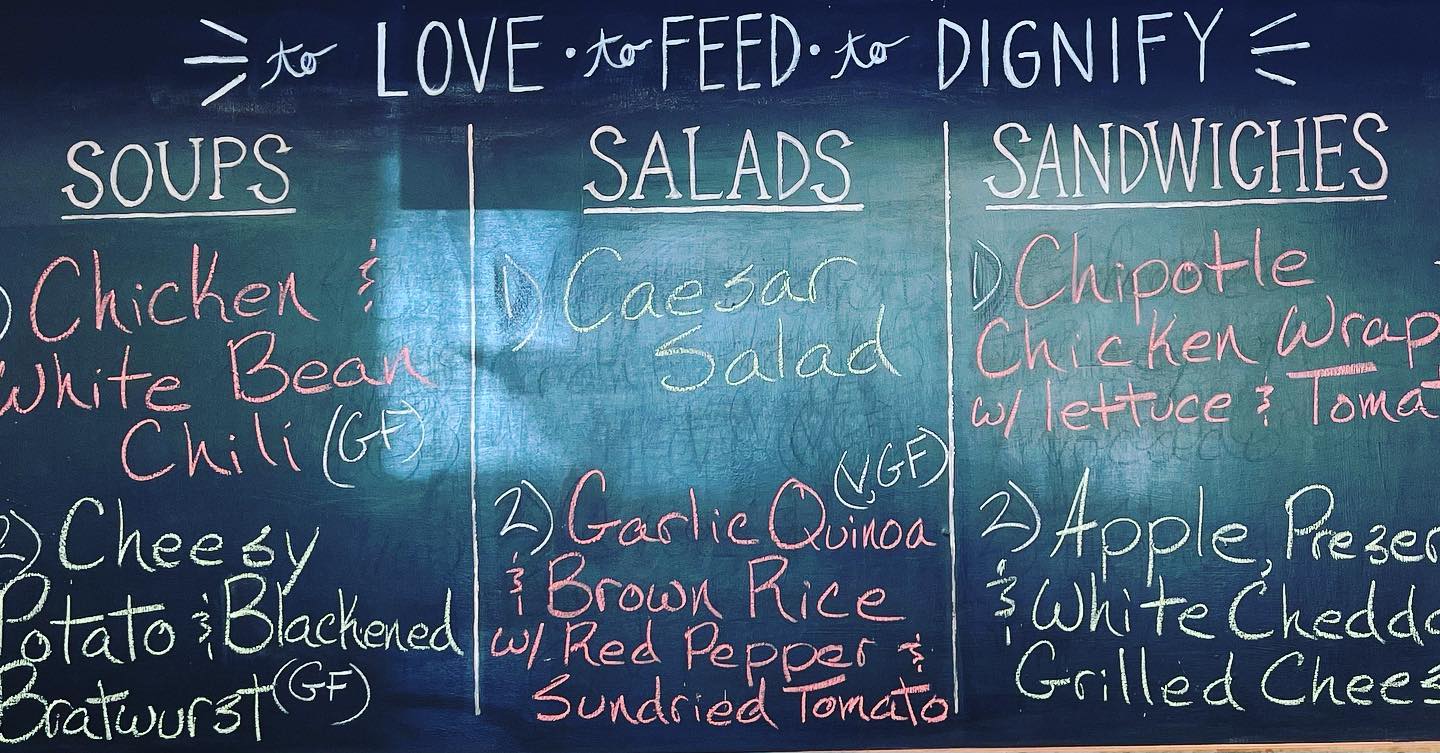 to LOVE · to FEED · to DIGNIFY
SOUPS
) Chicken &
White Bean
Chili (GF)
2) Cheesy
Potato & Blackened
Bratwurst (GF)
SALADS
1) Caesar
Salad
(V, GF)
2) Garlic Quinoa
& Brown Rice
w/ Red Pepper &
Sundried Tomato
SANDWICHES
1) Chipotle
Chicken Wrap
w/ lettuce & Tomat
2) Apple, Prezer
& White Chedda
Grilled Chees